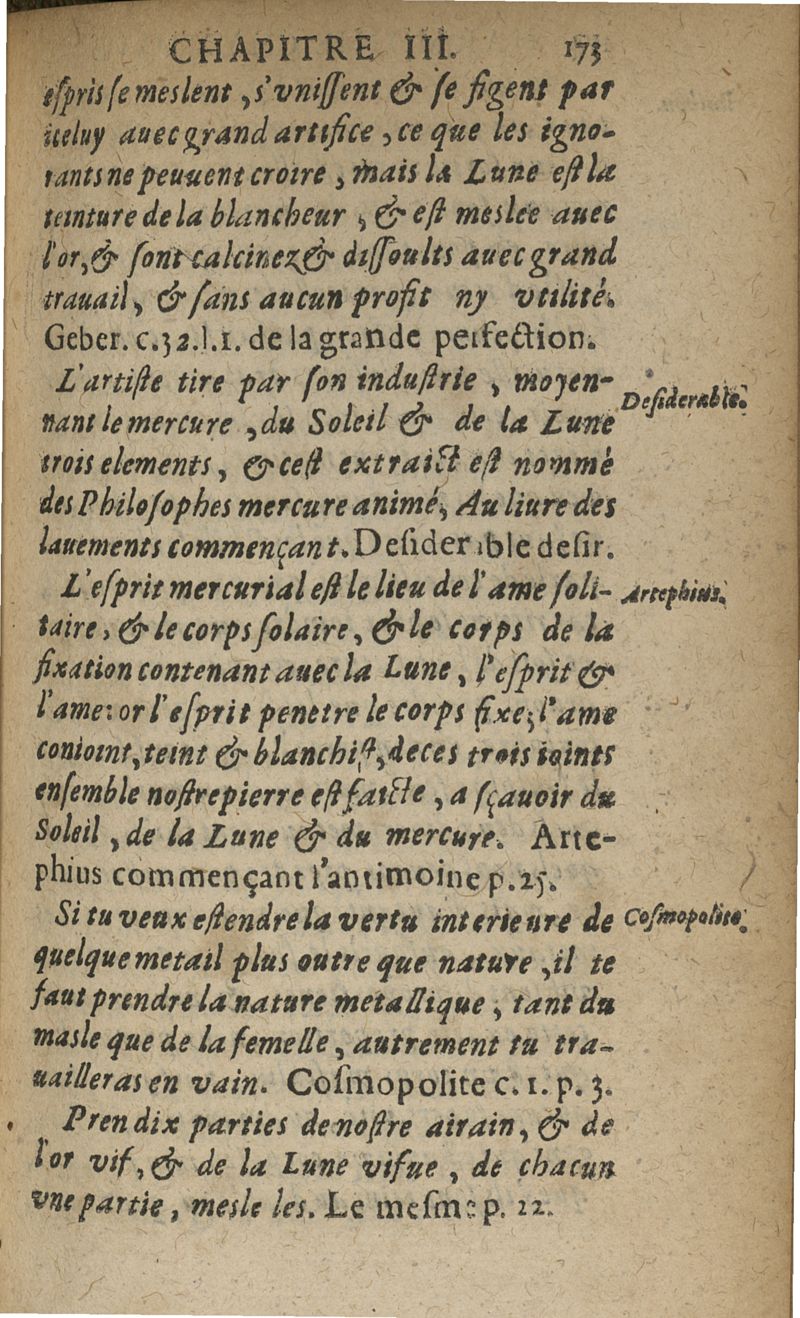 CHAPITRE III. 173
espris se meslent, s'vnissent & se figent par
iceluy auec grand artifice, ce que les igno-
rants ne peuuent croire, mais la Lune est la
teinture de la blancheur, & est meslee auec
l'or, & sont calcinez & dissoults auec grand
trauail, & sans aucun profit ny vtilité.
Geber. c. 32. l. 1. de la grande perfection.
L'artiste tire par son industrie, moyen-
Desiderable.
nant le mercure, du Soleil & de la Lune
trois elements, & cest extraict est nommé
des Philosophes mercure animé, Au liure des
lauements commençant. Desiderable desir.
L'esprit mercurial est le lieu de l'ame soli-
Artephius.
taire, & le corps solaire, & le corps de la
fixation contenant auec la Lune, l'esprit &
l'ame: or l'esprit penetre le corps fixe, l'ame
conioint, teint & blanchist, de ces trois ioints
ensemble nostre pierre est faicte, a sçauoir du
Soleil, de la Lune & du mercure. Arte-
phius commençant l'antimoine p. 25.
Si tu veux estendre la vertu interieure de
Cosmopolite.
quelque metail plus outre que nature, il te
faut prendre la nature metallique, tant du
masle que de la femelle, autrement tu tra-
uailleras en vain. Cosmopolite c. 1. p. 3.
Pren dix parties de nostre airain, & de
l'or vif, & de la Lune vifue, de chacun
vne partie, mesle les. Le mesme p. 22.